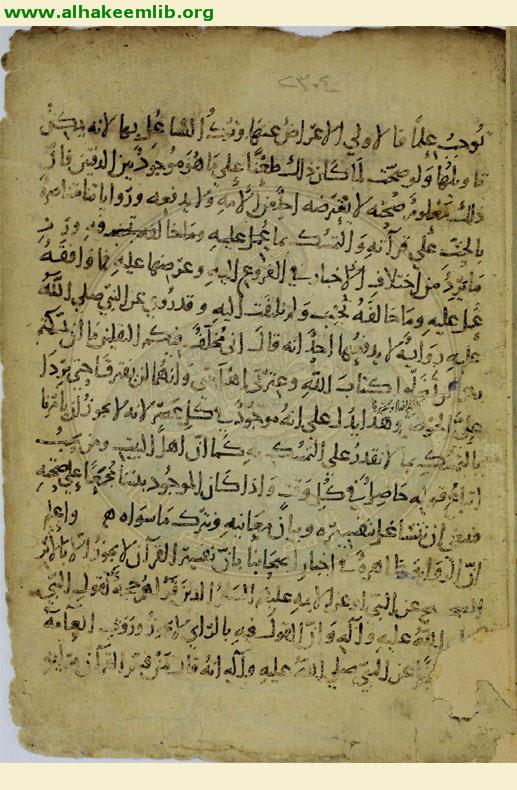 www.alhakeemlib.org
٢٣٠٤
توجب علما فالاولى الاعراض عنها وترك التشاغل بها لانه يمكن
تاويلها ولو صحت لما كان ذلك طعنا على ما هو موجود بين الدفتين فان
ذلك معلوم صحته لا يعترضه احد من الامة ولا يدفعه ورواياتنا متناصرة
بالحث على قرآته والتمسك بما فيه ورد
ما يرد من اختلاف الاخبار في الفروع اليه وعرضها عليه فما وافقه
عمل عليه وما خالفه تجنب ولم يلتفت اليه وقد روي عن النبي صلى الله
عليه رواية لا يدفعها احد انه قال اني مخلف فيكم الثقلين ما ان تمسكتم
بهما لن تضلوا كتاب الله وعترتي اهل بيتي وانهما لن يفترقا حتى يردا
على الحوض وهذا يدل على انه موجود في كل عصر لانه لا يجوز ان يامرنا
بالتمسك بما لا نقدر على التمسك به كما ان اهل البيت ومن يجب
اتباع قوله حاصل في كل وقت واذا كان الموجود بيننا مجمعا على صحته
فينبغي ان نتشاغل بتفسيره وبيان معانيه ونترك ما سواه واعلم
ان الرواية ظاهرة في اخبار اصحابنا بان تفسير القرآن لا يجوز الا بالاثر
الصحيح عن النبي وعن الائمة عليهم السلام الذين قولهم حجة كقول النبي
صلى الله عليه وآله وان القول فيه بالراي لا يجوز وروى العامة
عن النبي صلى الله عليه وآله انه قال من فسر القرآن برأيه